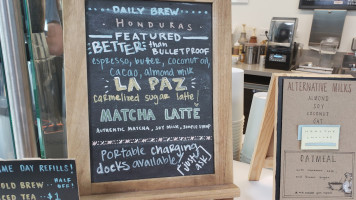 DAILY BREW
HONDURAS
FEATURED
BETTER than
BULLETPROOF
espresso, butter, coconut oil
cacao, almond milk
LA PAZ
carmelized sugar latte!
MATCHA LATTE
AUTHENTIC MATCHA, SOY MILK, SIMPLE SYRUP
Portable charging
docks available
JUST
ASK
ALTERNATIVE MILKS
ALMOND
SOY
COCONUT
OAT
OATMEAL
SAME DAY REFILLS!
COLD BREW
HALF
ICED TEA
$1